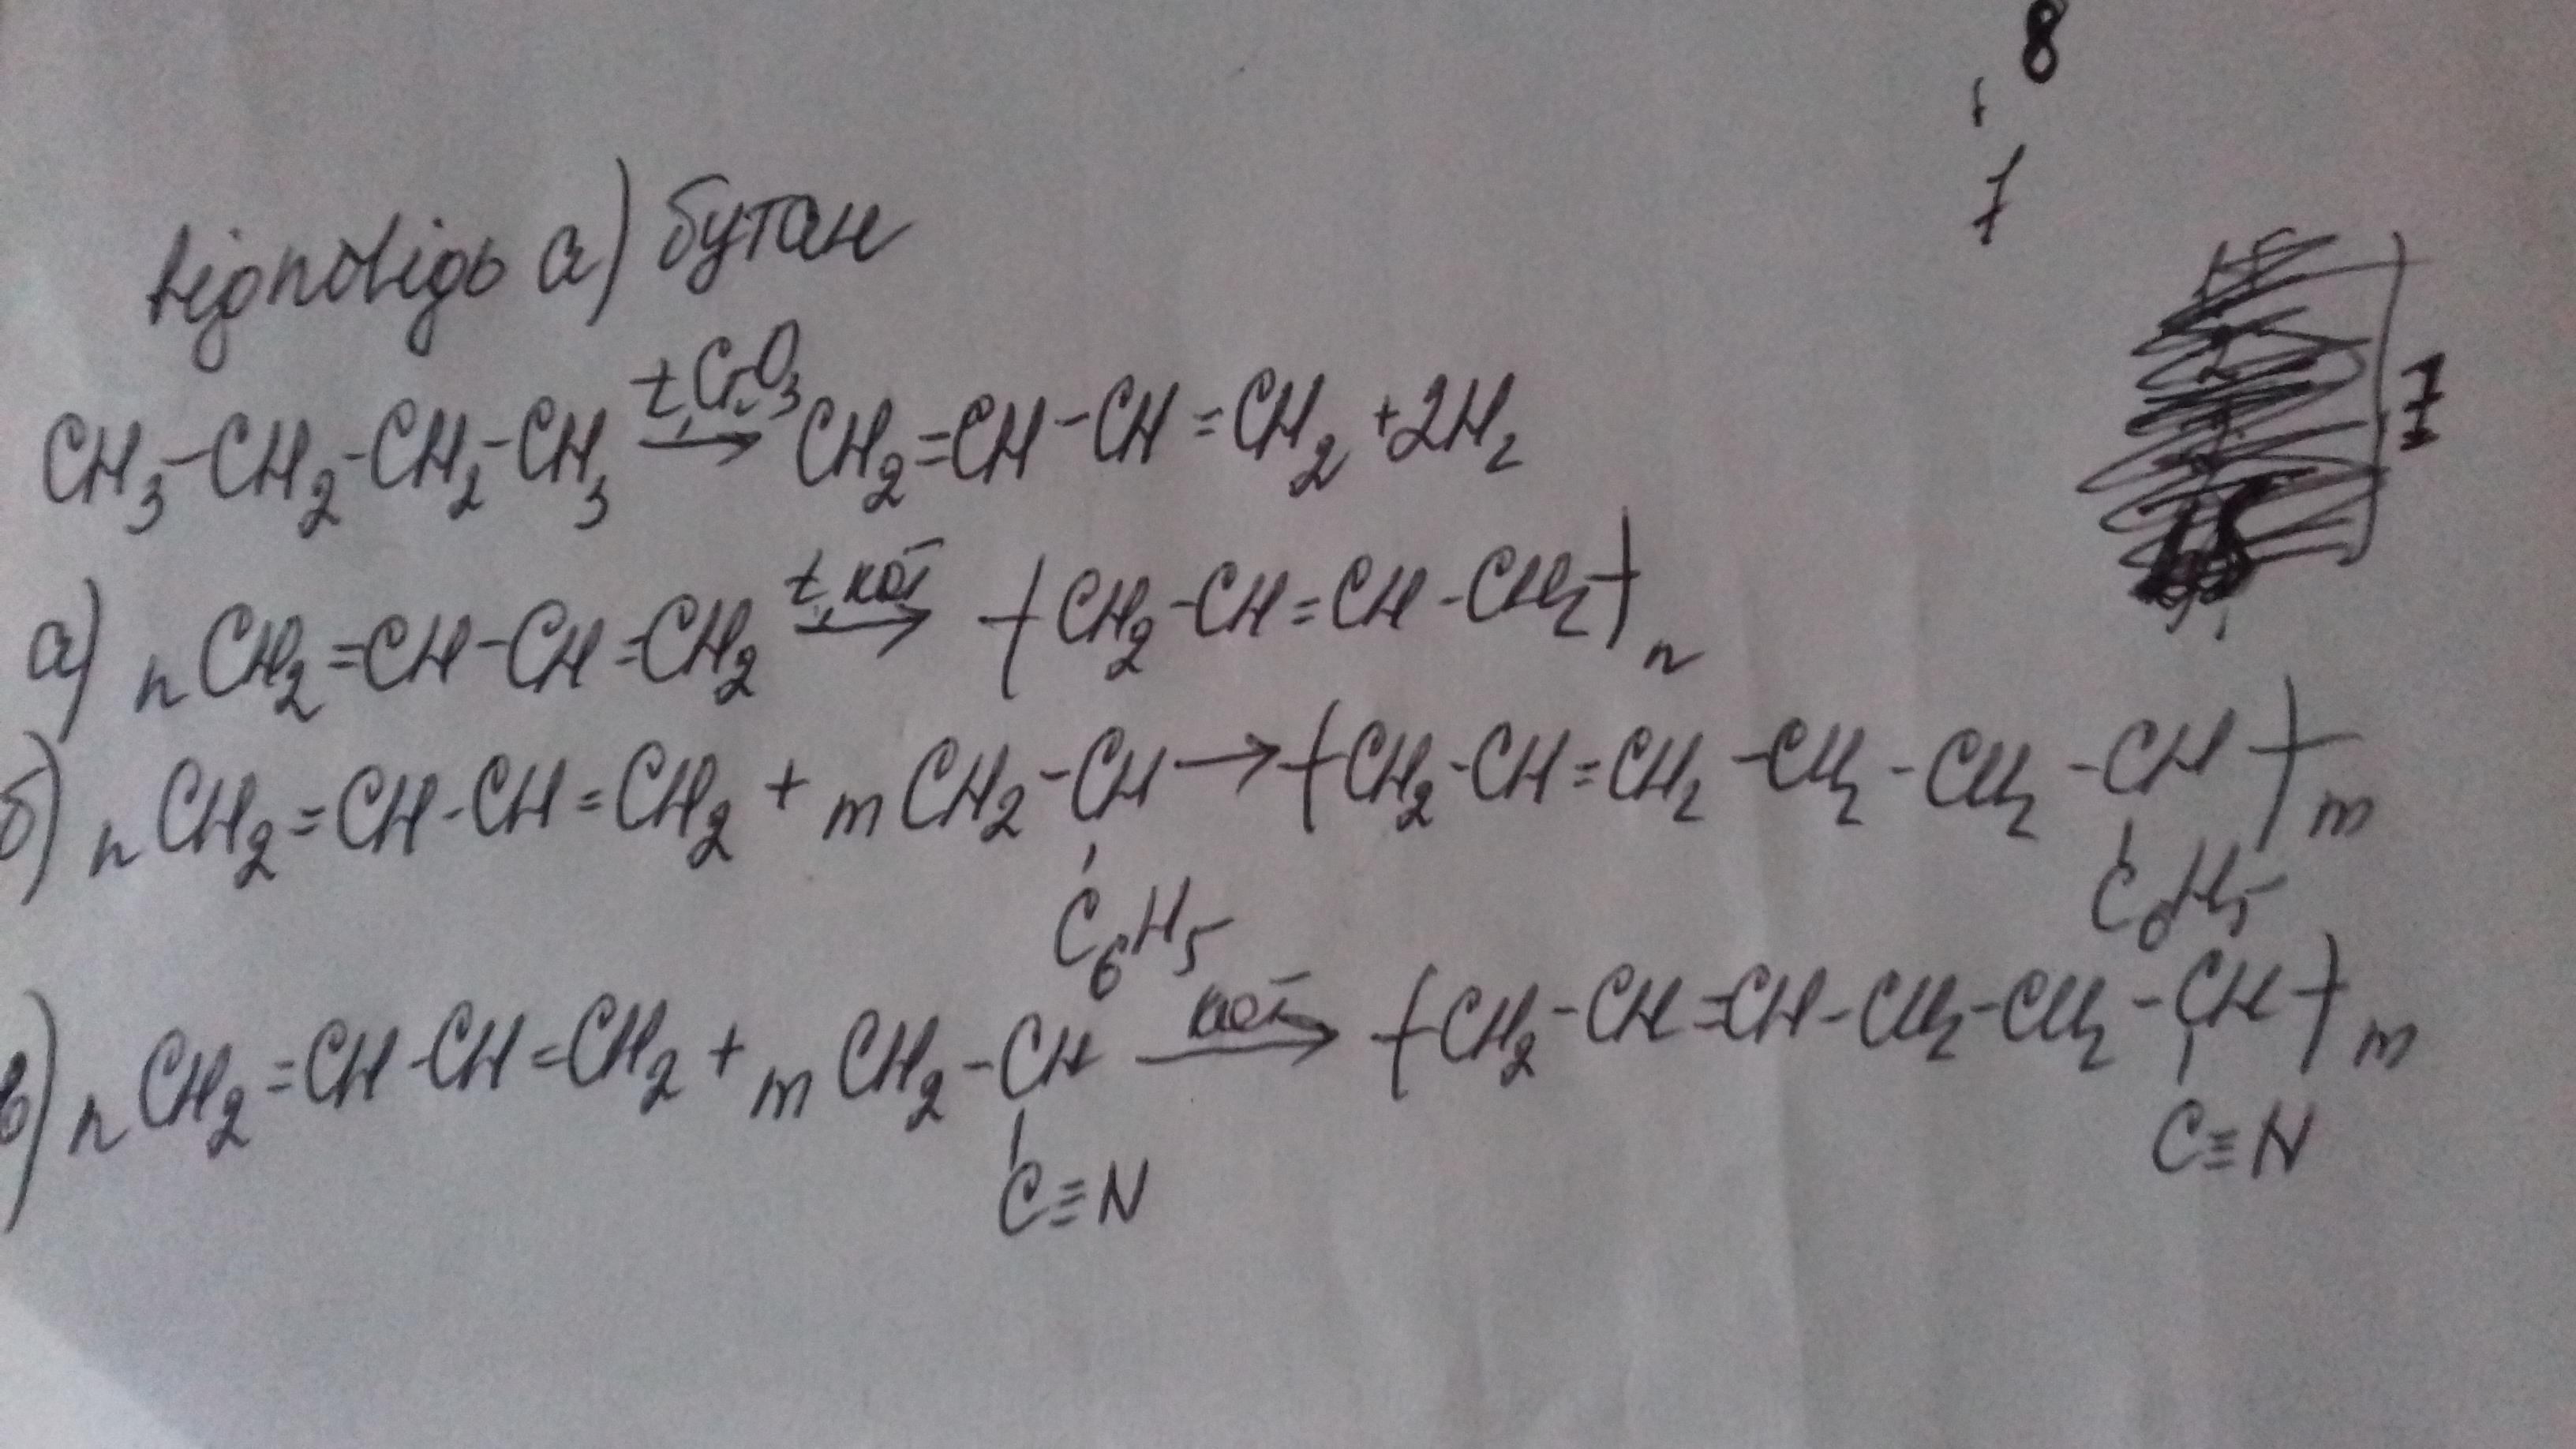 8
1
відповідь а) бутан
CH₃-CH₂-CH₂-CH₃ t, Cr₂O₃ → CH₂=CH-CH=CH₂ +2H₂
7
а) nCH₂=CH-CH=CH₂ t, кат → (CH₂-CH=CH-CH₂)n
б) nCH₂=CH-CH=CH₂ + mCH₂-CH → (CH₂-CH=CH₂-CH₂-CH₂-CH)m
C₆H₅ C₆H₅
в) nCH₂=CH-CH=CH₂ + mCH₂-CH кат → (CH₂-CH=CH-CH₂-CH₂-CH)m
C≡N C≡N